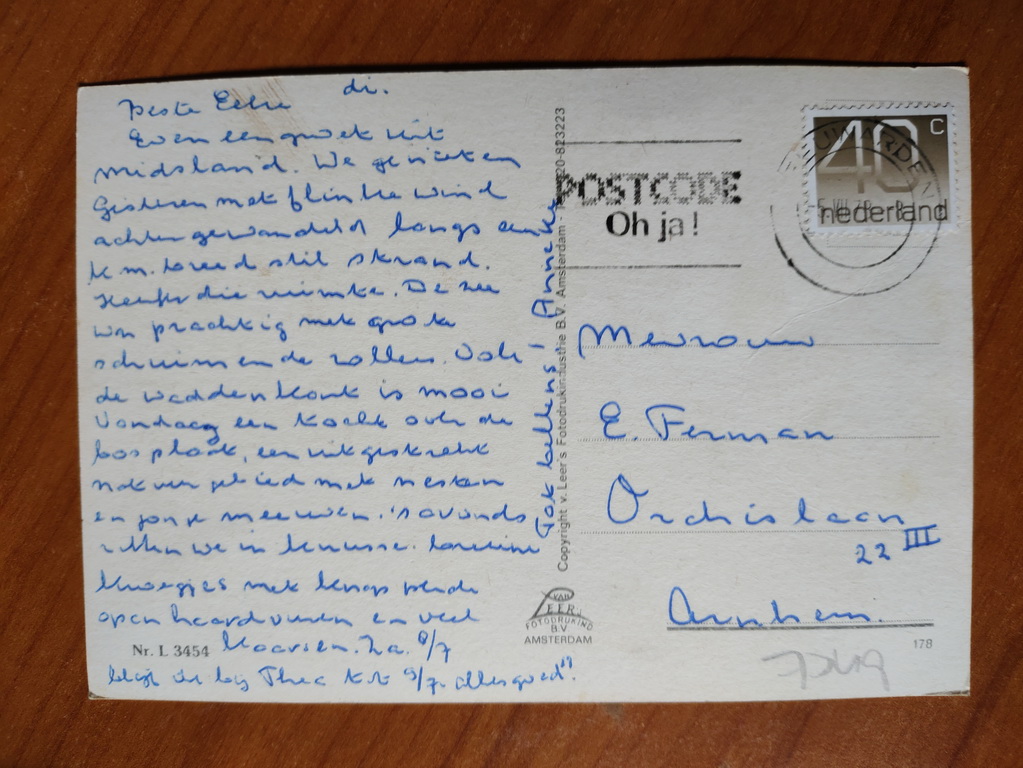 di.
Beste Eelne
Even een groet uit
Midsland. We genieten
Gisteren met flinke wind
achter gewandeld langs een
k.m. breed stil strand.
Heerlijk die ruimte. De zee
was prachtig met grote
schuimende rollers. Ook
de waddenkant is mooi
Vandaag een tocht over de
bosplaat, een uitgestrekt
natuurgebied met nesten
en jonge meeuwen. 's avonds
zitten we in knusse
kroegjes met knappende
open haardvuren en veel
Maarsen. Za. 8/7
blijf ik bij Thea tot 9/7. alles goed?
Tot bellens! Anneke
Nr. L 3454
Copyright v. Leer's Fotodrukindustrie B.V. Amsterdam - 020-823223
VAN LEER
FOTODRUKIND
B.V.
AMSTERDAM
POSTCODE
Oh ja!
40 c
nederland
Mevrouw
E. Ferman
Orchislaan
22 III
Arnhem.
178